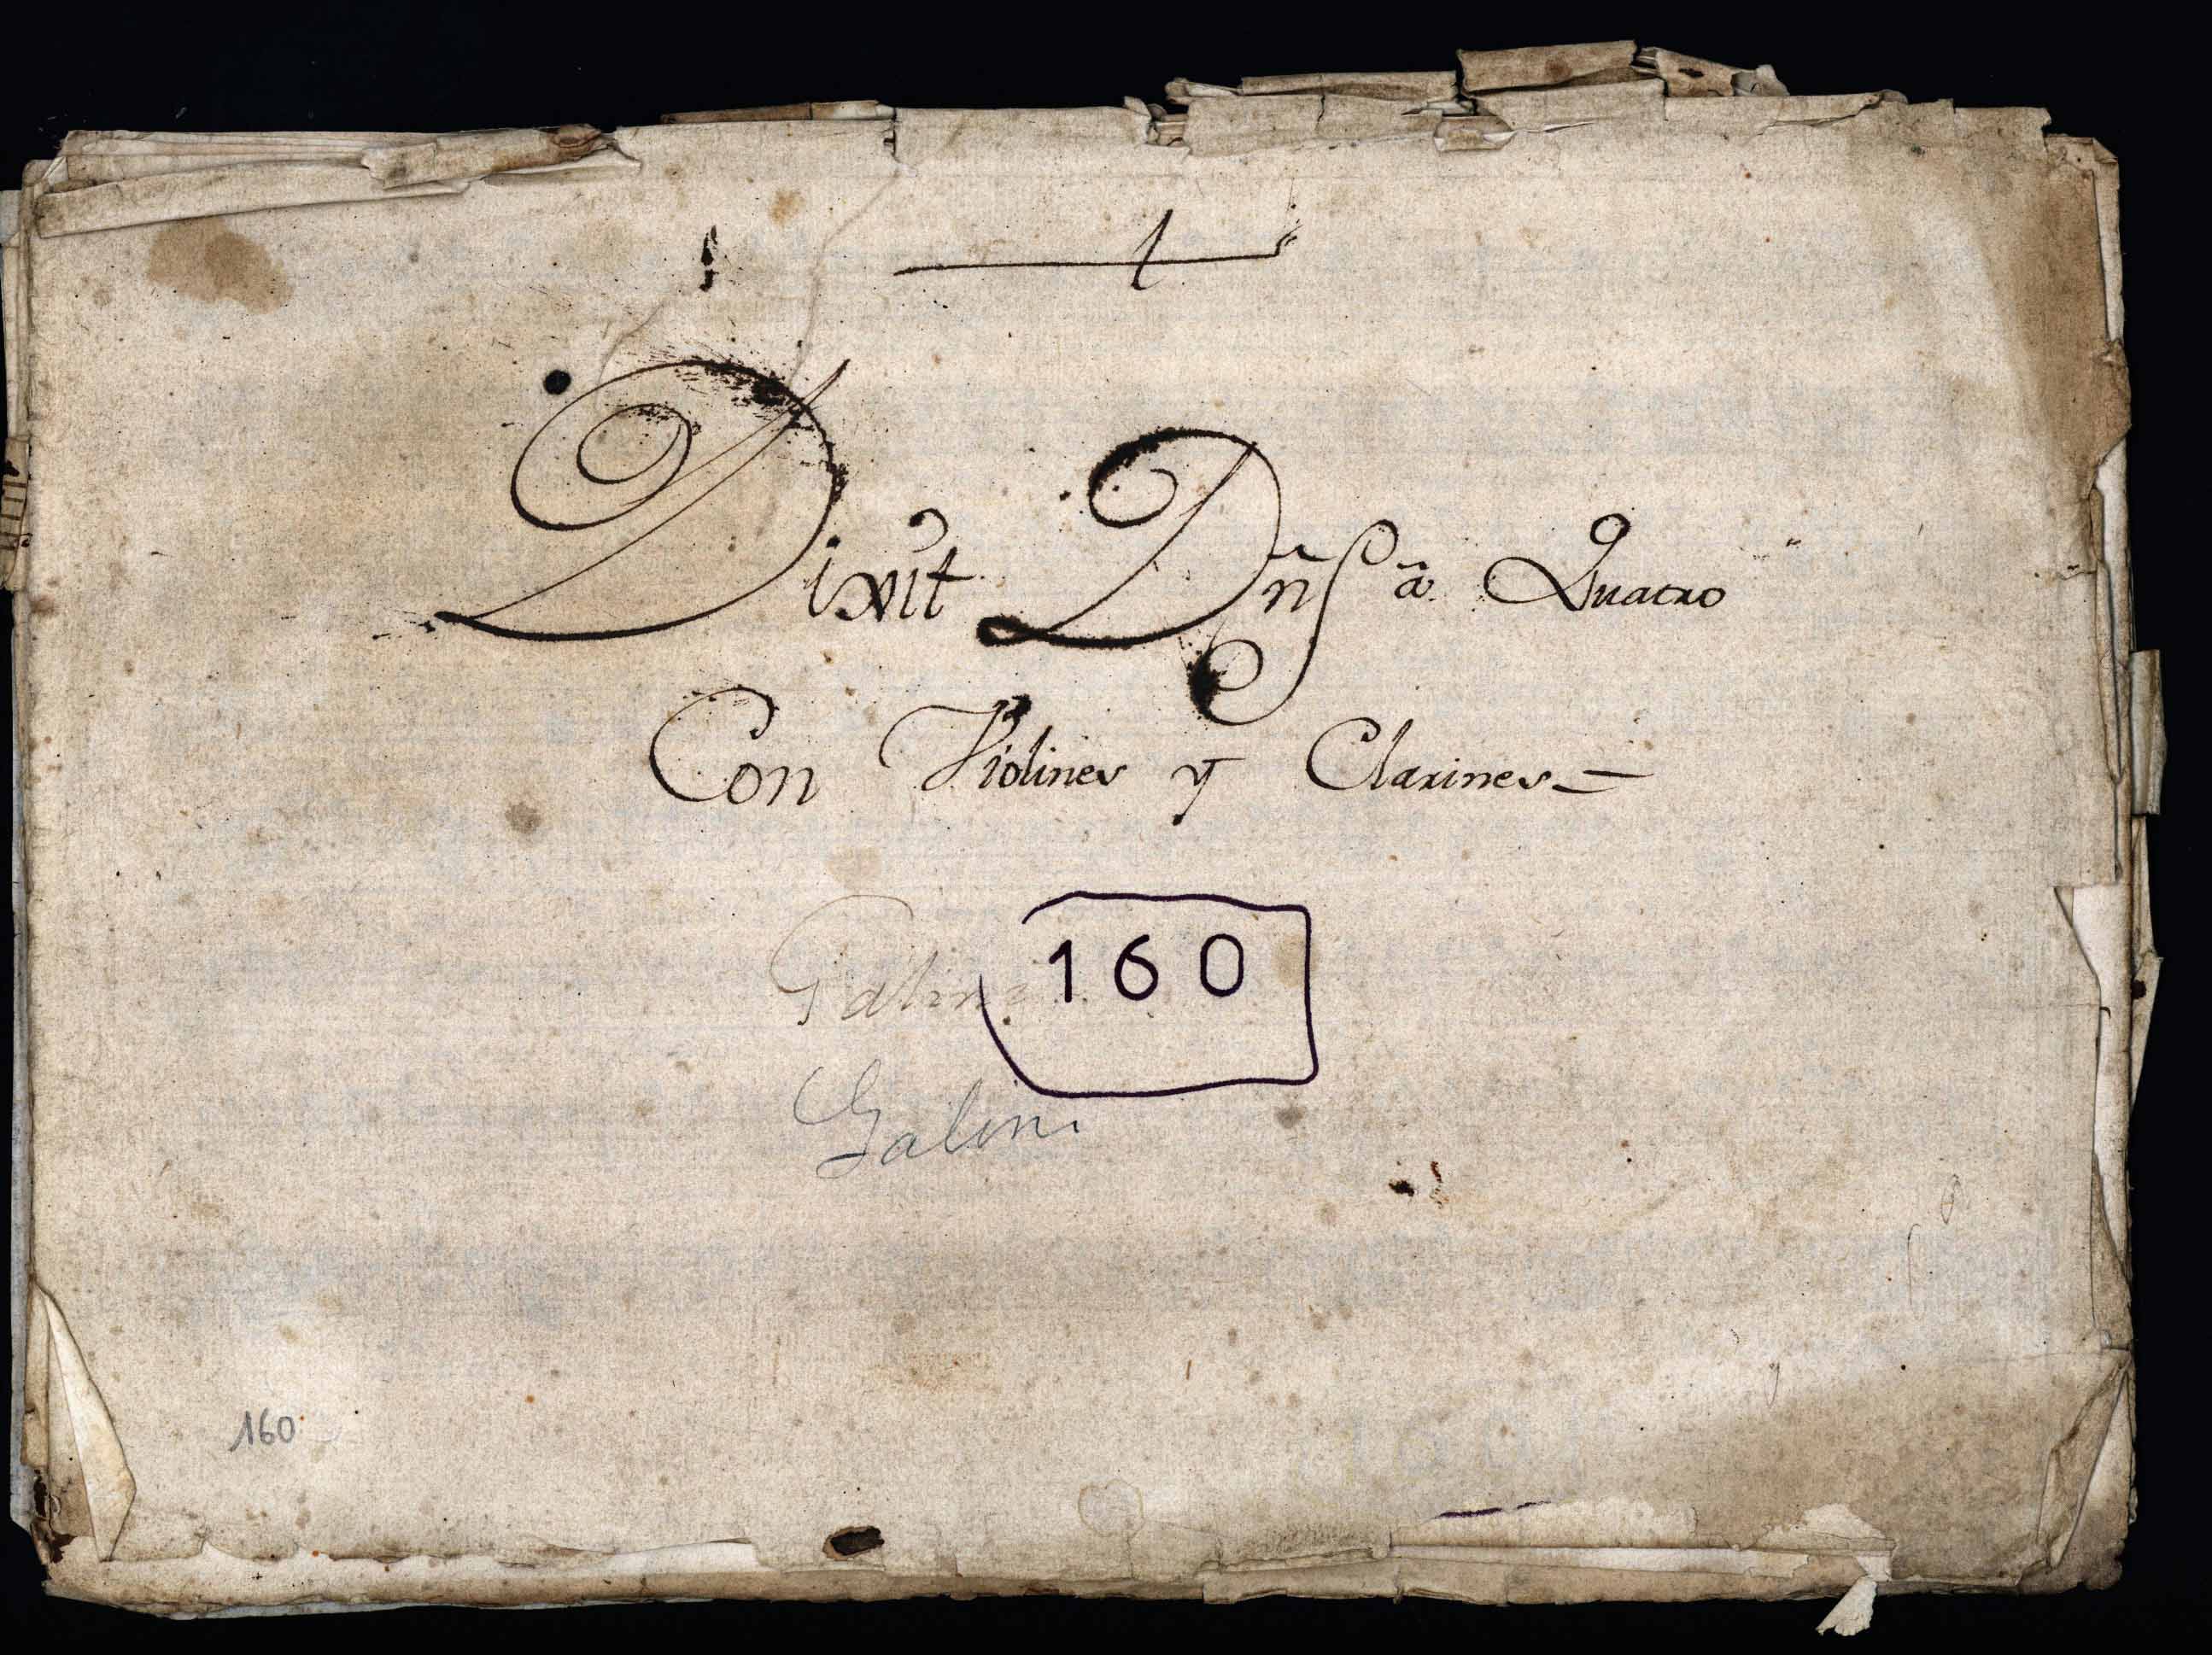 Dixit Dñs â Quatro
Con Violines y Clarines =
160
Galini
160